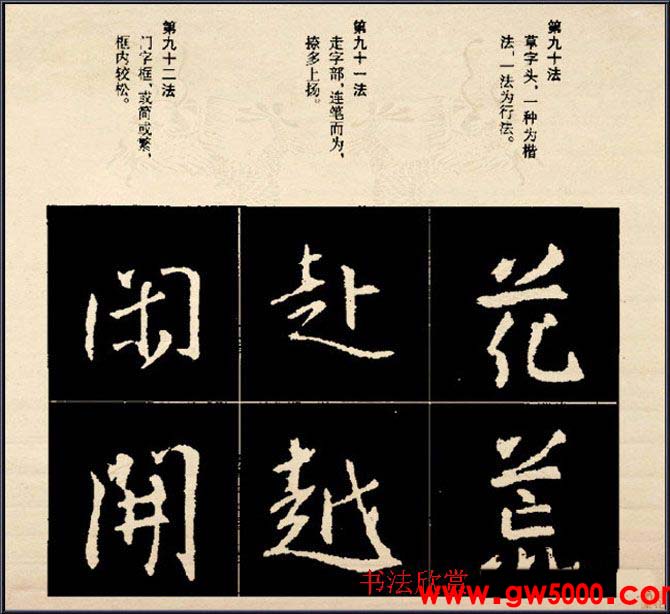 第九十法
草字头，一种为楷
法，一法为行法。
第九十一法
走字部，连笔而为，
捺多上扬。
第九十二法
门字框，或简或繁，
框内较松。
花
荒
赴
越
闲
開
书法欣赏
www.gw5000.com